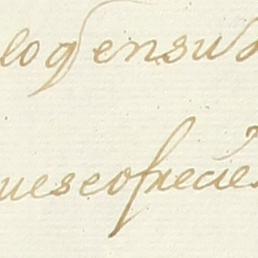 log ensus
ueseofrecie